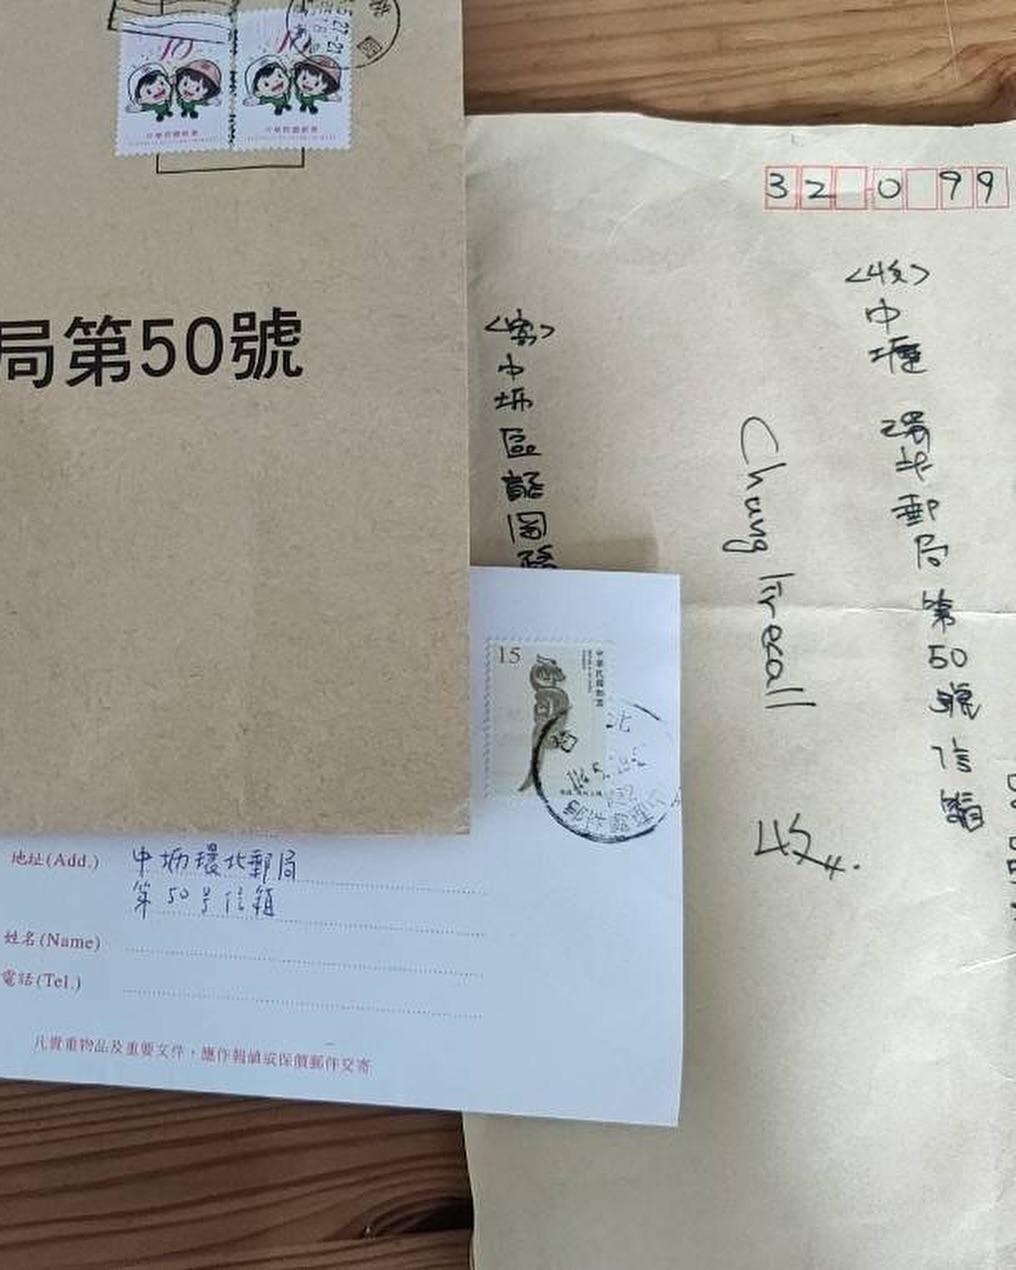 10 10
中華民國郵票 中華民國郵票
局第50號
32 0 99
<收>
中壢 環北郵局第50號信箱
Chung lirecall
收
<寄>
中坜區龍岡路
15
中華民國郵票
北
郵件處理
地址(Add.) 中坜環北郵局
第50号信箱
姓名(Name)
電話(Tel.)
凡貴重物品及重要文件，應作報值或保價郵件交寄